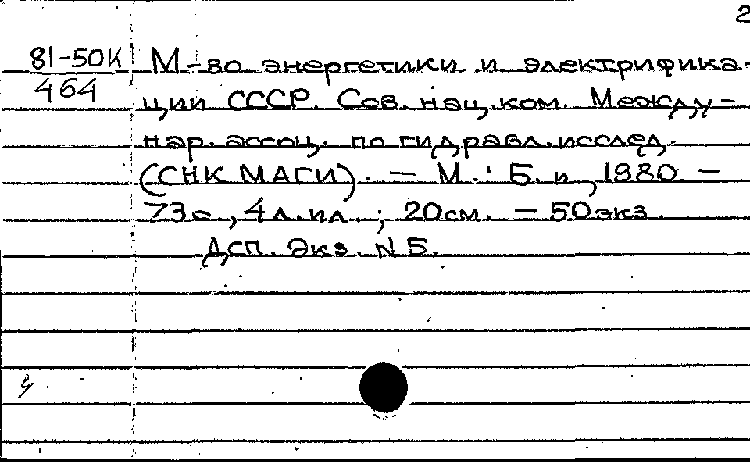 2
81-50К М-во энергетики и электрифика-
464 ции СССР. Сов. нац. ком. Между-
нар. ассоц. по гидравл. исслед.
(СНК МАГИ). — М. : Б. и, 1980. —
73с., 4л. ил. ; 20см. — 50экз.
ДСП. Экз. N 5.